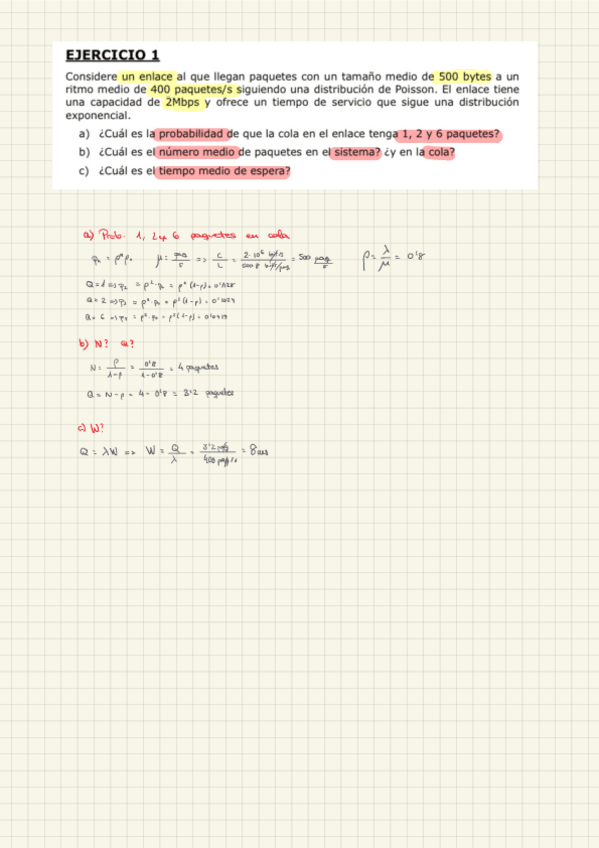 EJERCICIO 1
Considere un enlace al que llegan paquetes con un tamaño medio de 500 bytes a un
ritmo medio de 400 paquetes/s siguiendo una distribución de Poisson. El enlace tiene
una capacidad de 2Mbps y ofrece un tiempo de servicio que sigue una distribución
exponencial.
a) ¿Cuál es la probabilidad de que la cola en el enlace tenga 1, 2 y 6 paquetes?
b) ¿Cuál es el número medio de paquetes en el sistema? ¿y en la cola?
c) ¿Cuál es el tiempo medio de espera?
a) Prob. 1, 2 y 6 paquetes en cola
μ = paq/s => C/L = 2·10⁶ bits/s / 500·8 bits/paq = 500 paq/s ρ = λ/μ = 0'8
Q=1 => p₂ = ρ²·p₀ = ρ²(1-ρ) = 0'128
Q=2 => p₃ = ρ³·p₀ = ρ³(1-ρ) = 0'1024
Q=6 => p₇ = ρ⁷·p₀ = ρ⁷(1-ρ) = 0'0419
b) N? Q?
N = ρ/1-ρ = 0'8/1-0'8 = 4 paquetes
Q = N-ρ = 4-0'8 = 3'2 paquetes
c) W?
Q = λW => W = Q/λ = 3'2 paq/400 paq/s = 8ms